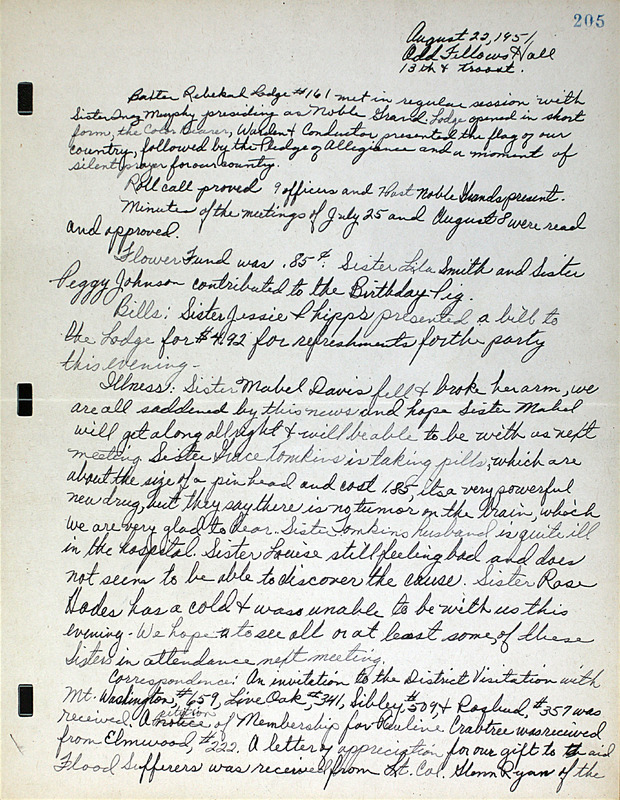 205
August 22, 1951,
Odd Fellows Hall
13th & Troost.
Baxter Rebekah Lodge #161 met in regular session with
Sister Inez Murphy presiding as Noble Grand. Lodge opened in short
form, the Color Bearer, Warden & Conductor presented the flag of our
country, followed by the Pledge of Allegiance and a moment of
silent prayer for our country.
Roll call proved 9 officers and 7 Past Noble Grands present.
Minutes of the meetings of July 25 and August 8 were read
and approved.
Flower Fund was .85¢. Sister Lila Smith and Sister
Peggy Johnson contributed to the Birthday Pig.
Bills: Sister Jessie Phipps presented a bill to
the Lodge for $4.92 for refreshments for the party
this evening-
Illness: Sister Mabel Davis fell & broke her arm, we
are all saddened by this news and hope Sister Mabel
will get along allright & will be able to be with us next
meeting. Sister Tomkins is taking pills, which are
about the size of a pin head and cost 1.85, its a very powerful
new drug, but they say there is no tumor on the brain, which
we are very glad to hear. Sister Tomkins husband is quite ill
in the hospital. Sister Louise still feeling bad and does
not seem to be able to discover the cause. Sister Rose
Hodes has a cold & was unable to be with us this
evening- We hope to see all or at least some, of these
Sisters in attendance next meeting.
Correspondence: An invitation to the District Visitation with
Mt. Washington, #659, Live Oak, #341, Sibley #509, & #357 was
received. A petition of Membership for Pauline Crabtree was received
from Elmwood, #222. A letter of appreciation for our gift to aid
Flood Sufferers was received from Lt. Col. Glenn Ryan of the